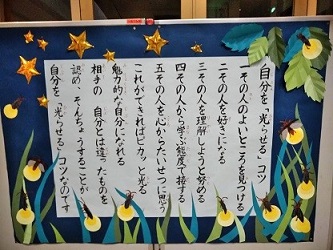 自分を「光らせる」コツ
一その人のよいところを見つける
二その人を好きになる
三その人を理解しようと努める
四その人から学ぶ態度で接する
五その人を心からたいせつに思う
これができればピカッと光る
魅力的な自分になれる
相手の 自分とは違ったものを
認め そんちょうすることが
自分を「光らせる」コツなのです